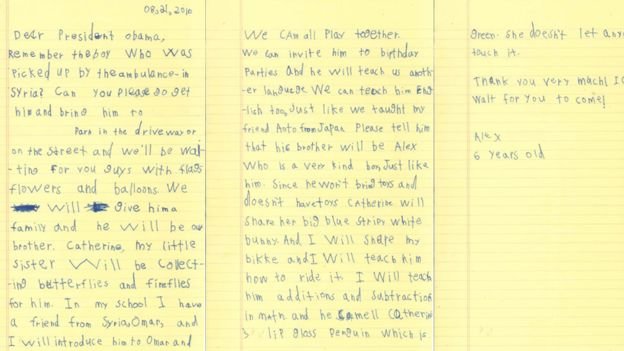 08,21,2016
Dear President obama,
Remember the boy who was
picked up by the ambulance in
Syria? Can you please go get
him and bring him to
Park in the driveway or
on the street and we'll be wai-
ting for you guys with flags
flowers and balloons. We
will give him a
family and he will be our
brother. Catherine, my little
sister will be collect-
ing butterflies and fireflies
for him. In my school I have
a friend from Syria, Omar, and
I will introduce him to Omar and
We can all play together.
We can invite him to birthday
parties and he will teach us anoth-
er language. We can teach him Eng
lish too, Just like we taught my
friend Aoto from Japan Please tell him
that his brother will be Alex
who is a very kind boy, Just like
him. Since he won't bring toys and
doesn't have toys Catherine will
share her big blue stripy white
bunny. And I will share my
bikke and I will teach him
how to ride it. I will teach
him additions and subtractions
in math and he smell Catherine
s lip gloss penguin which is
green. She doesn't let any
touch it.
Thank you very much! I
wait for you to come!
Alex
6 years old